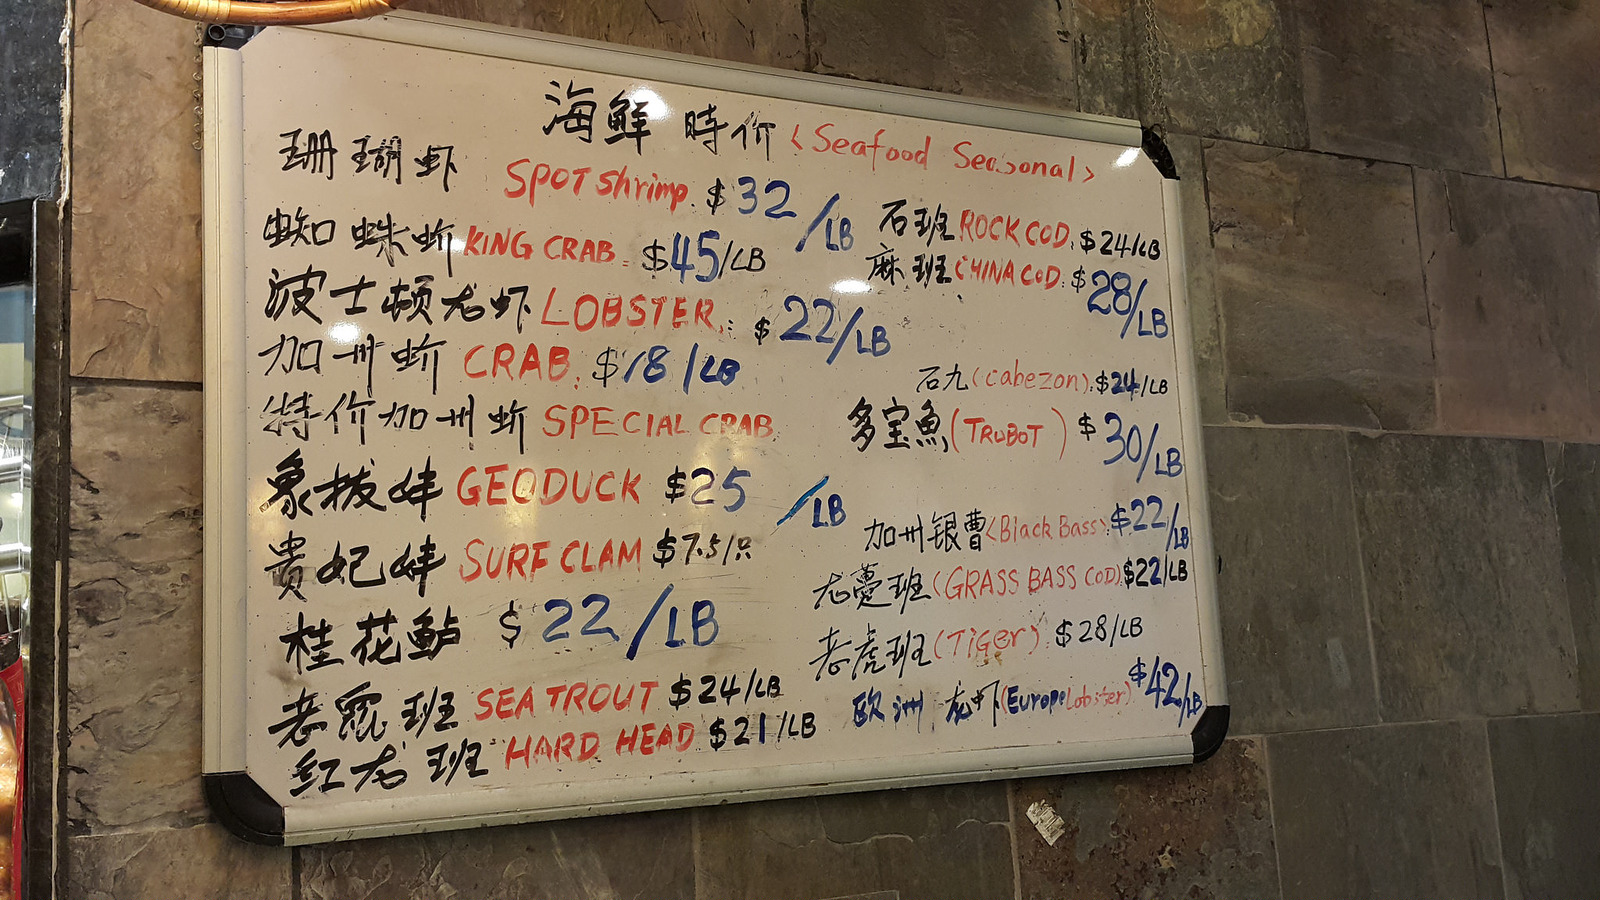 海鲜 時价 <Seafood Seasonal>
珊瑚虾 SPOT Shrimp. $32/LB
蜘蛛蚧 KING CRAB. $45/LB
波士顿龙虾 LOBSTER. : $22/LB
加州蚧 CRAB. $18/LB
特价加州蚧 SPECIAL CRAB
象拔蚌 GEODUCK $25/LB
贵妃蚌 SURF CLAM $7.5/只
桂花鲈 $22/LB
老鼠班 SEA TROUT $24/LB
红龙班 HARD HEAD $21/LB
石班 ROCK COD. $24/LB
麻班 CHINA COD. $28/LB
石九 (cabezon). $24/LB
多宝魚 (TRUBOT) $30/LB
加州银曹 <Black Bass>. $22/LB
龙躉班 (GRASS BASS COD) $22/LB
老虎班 (TiGer) $28/LB
欧洲龙虾 (Europe Lobster) $42/LB